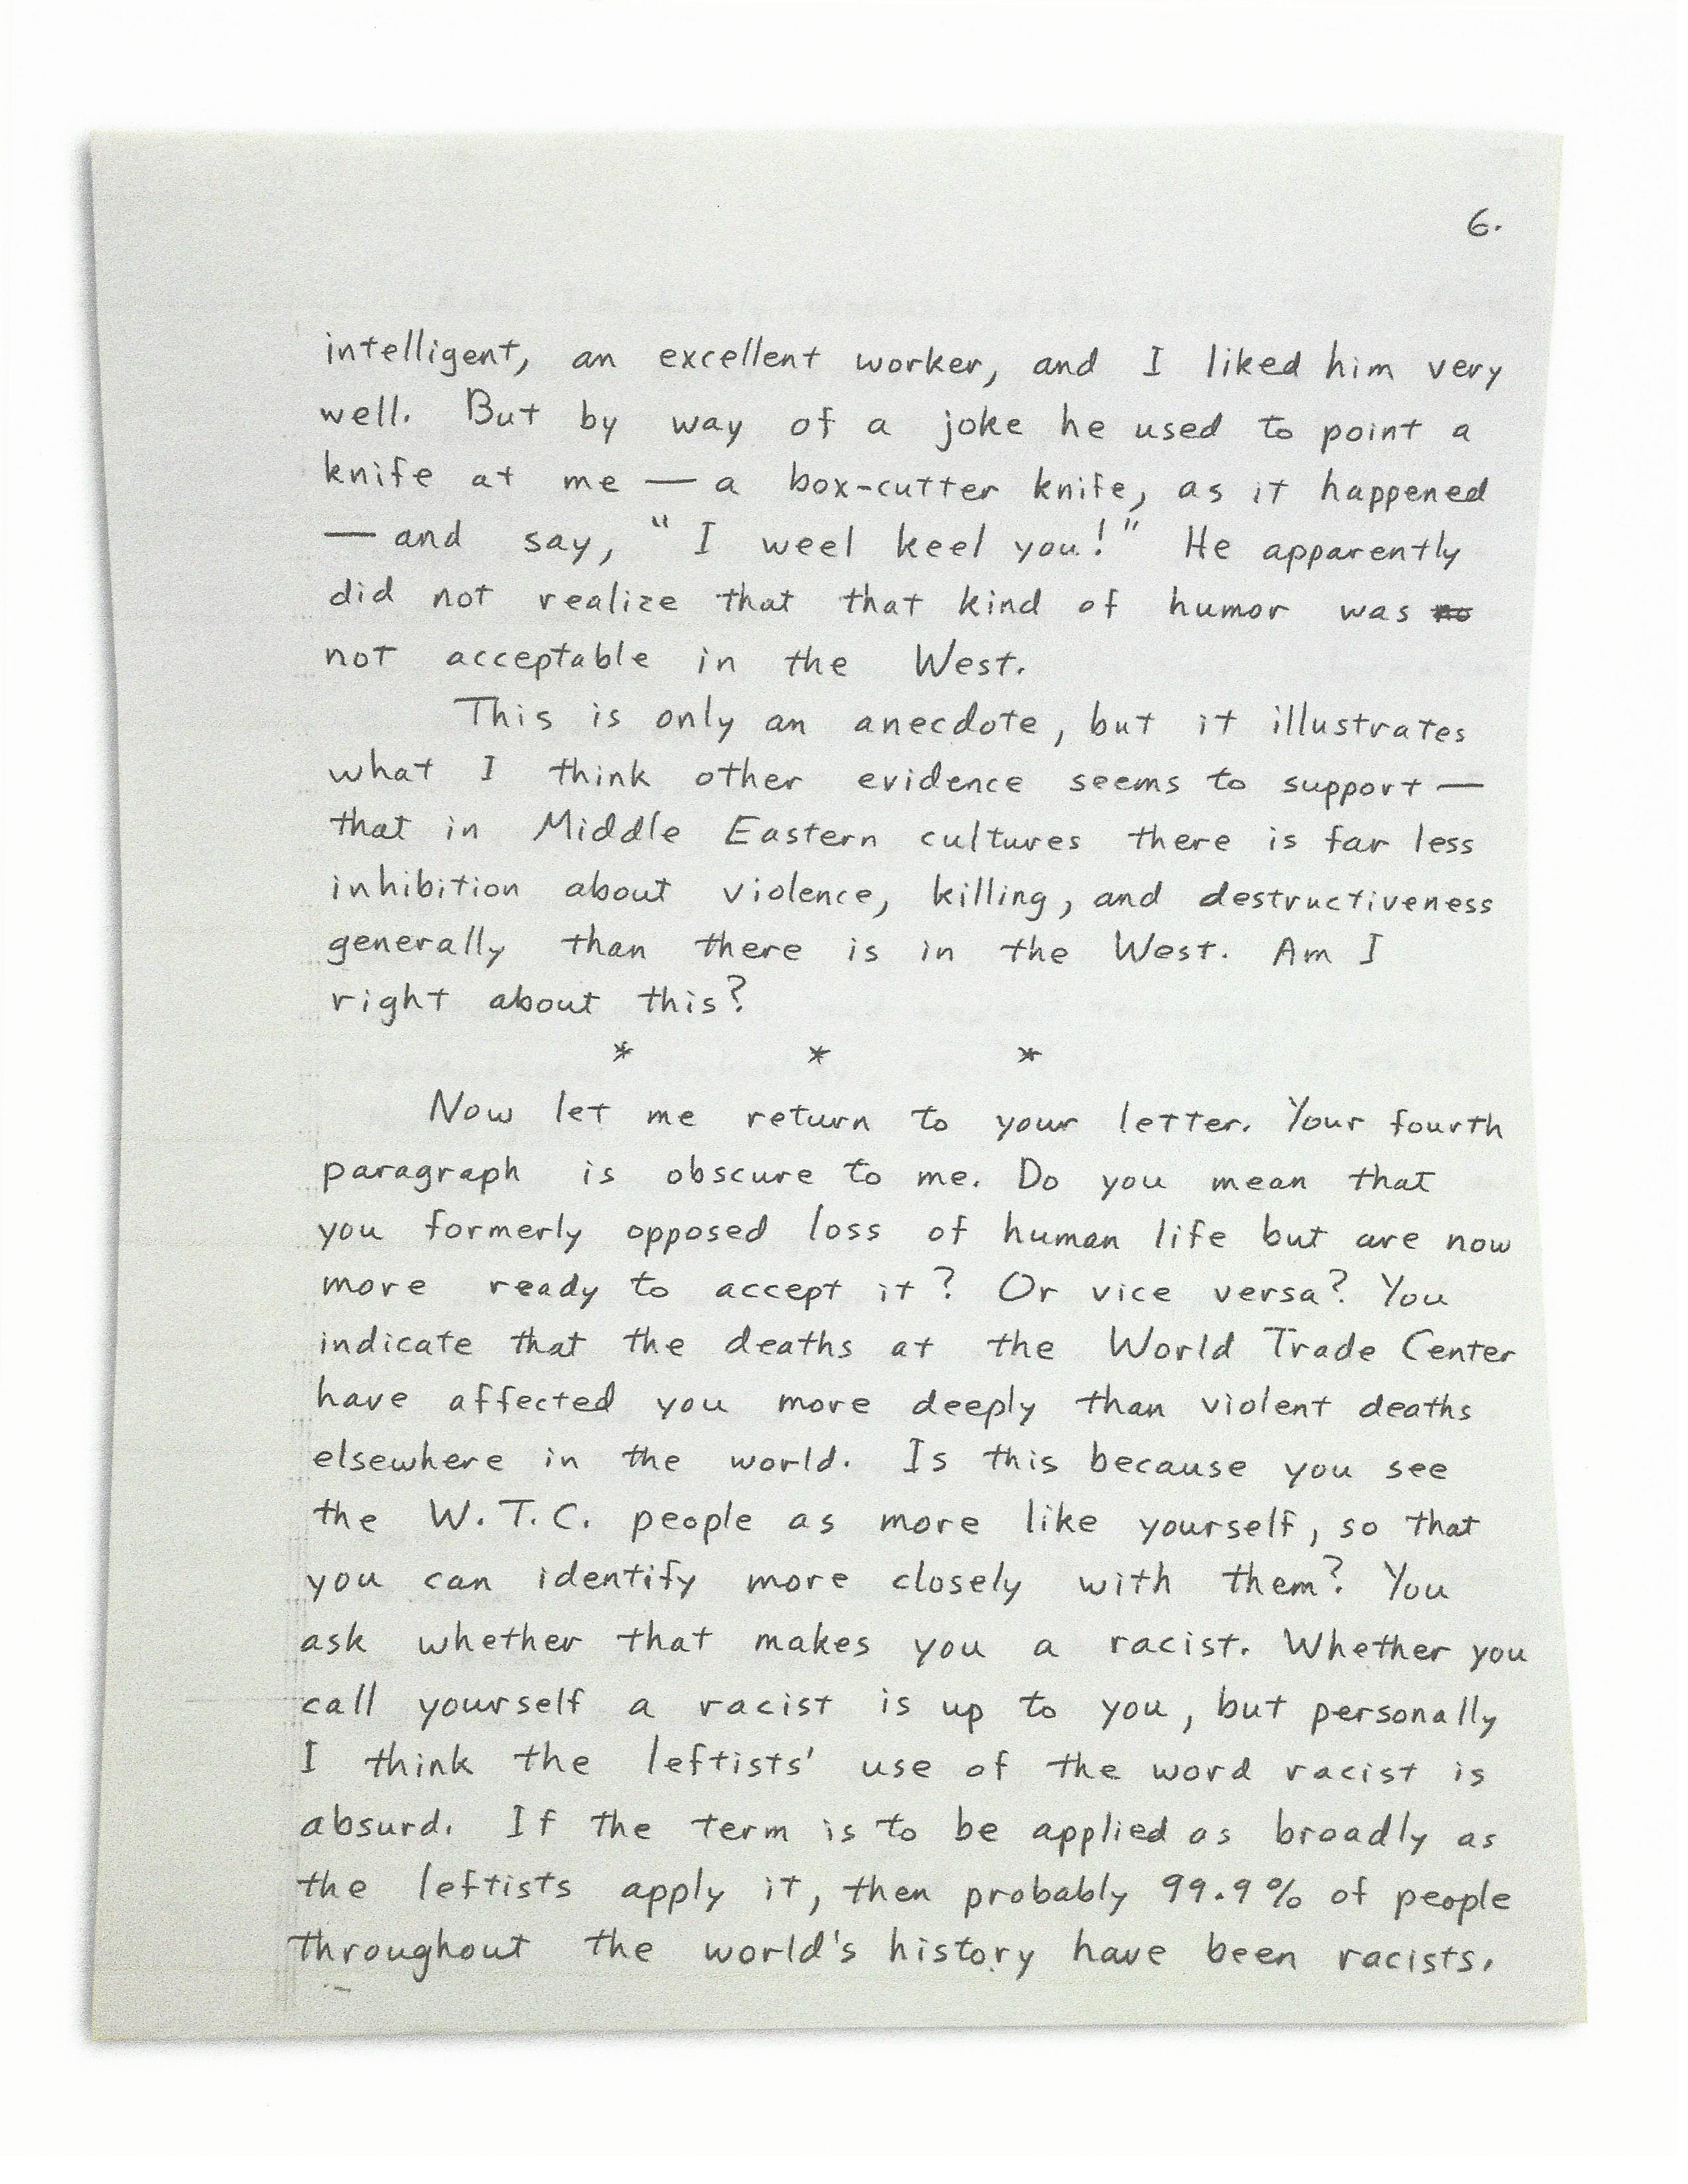 6.
intelligent, an excellent worker, and I liked him very
well. But by way of a joke he used to point a
knife at me — a box-cutter knife, as it happened
— and say, "I weel keel you!" He apparently
did not realize that that kind of humor was no
not acceptable in the West.
This is only an anecdote, but it illustrates
what I think other evidence seems to support —
that in Middle Eastern cultures there is far less
inhibition about violence, killing, and destructiveness
generally than there is in the West. Am I
right about this?
* * *
Now let me return to your letter. Your fourth
paragraph is obscure to me. Do you mean that
you formerly opposed loss of human life but are now
more ready to accept it? Or vice versa? You
indicate that the deaths at the World Trade Center
have affected you more deeply than violent deaths
elsewhere in the world. Is this because you see
the W.T.C. people as more like yourself, so that
you can identify more closely with them? You
ask whether that makes you a racist. Whether you
call yourself a racist is up to you, but personally
I think the leftists' use of the word racist is
absurd. If the term is to be applied as broadly as
the leftists apply it, then probably 99.9% of people
throughout the world's history have been racists.